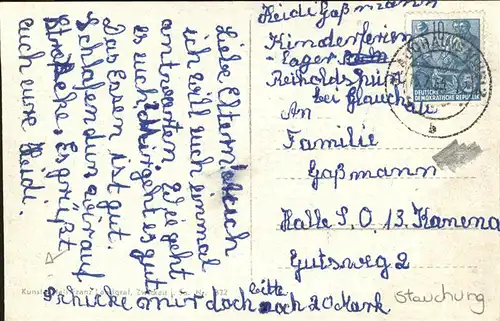 Liebe Eltern!
ich will euch einmal
antworten. Wie geht
es euch. Mir geht es gut.
Das Essen ist gut.
Schlafen tun wir auf
Es grüßt
euch eure Heidi.
Schicke mir doch bitte noch 20 Mark
Heidi Gaßmann
Kinderferien-
lager
Reinholdshain
bei Glauchau
An
Familie
Gaßmann
Halle S. O. 13. Kanena
Gutsweg 2
Stauchung
10
DEUTSCHE
DEMOKRATISCHE REPUBLIK
b